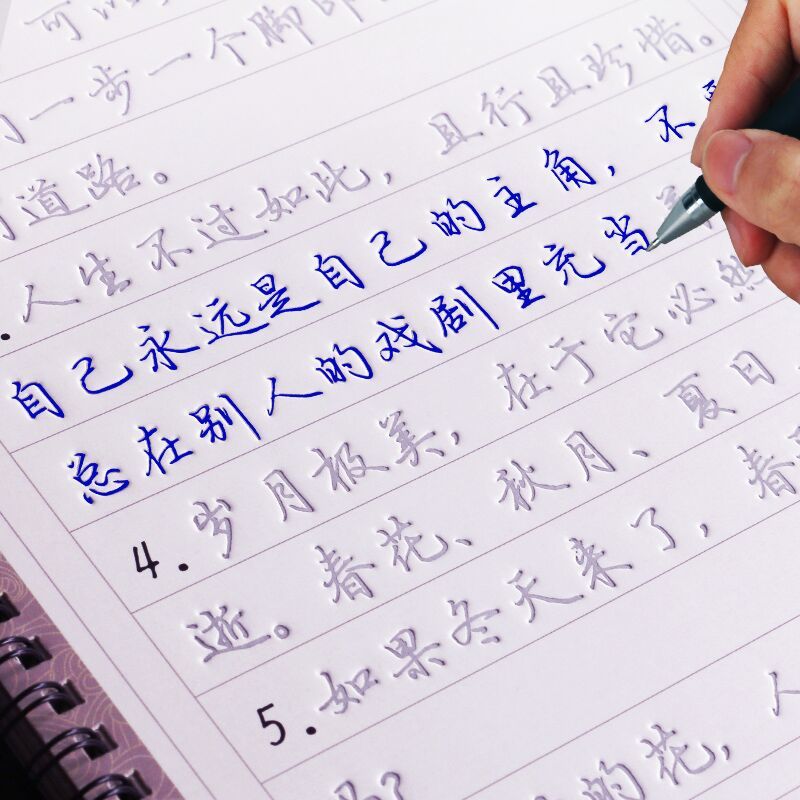 可以
一步一个脚印
道路。
.人生不过如此，且行且珍惜。
自己永远是自己的主角，不
总在别人的戏剧里充当
4.岁月极美，在于它必然
逝。春花、秋月、夏日、
5.如果冬天来了，春
的花，人